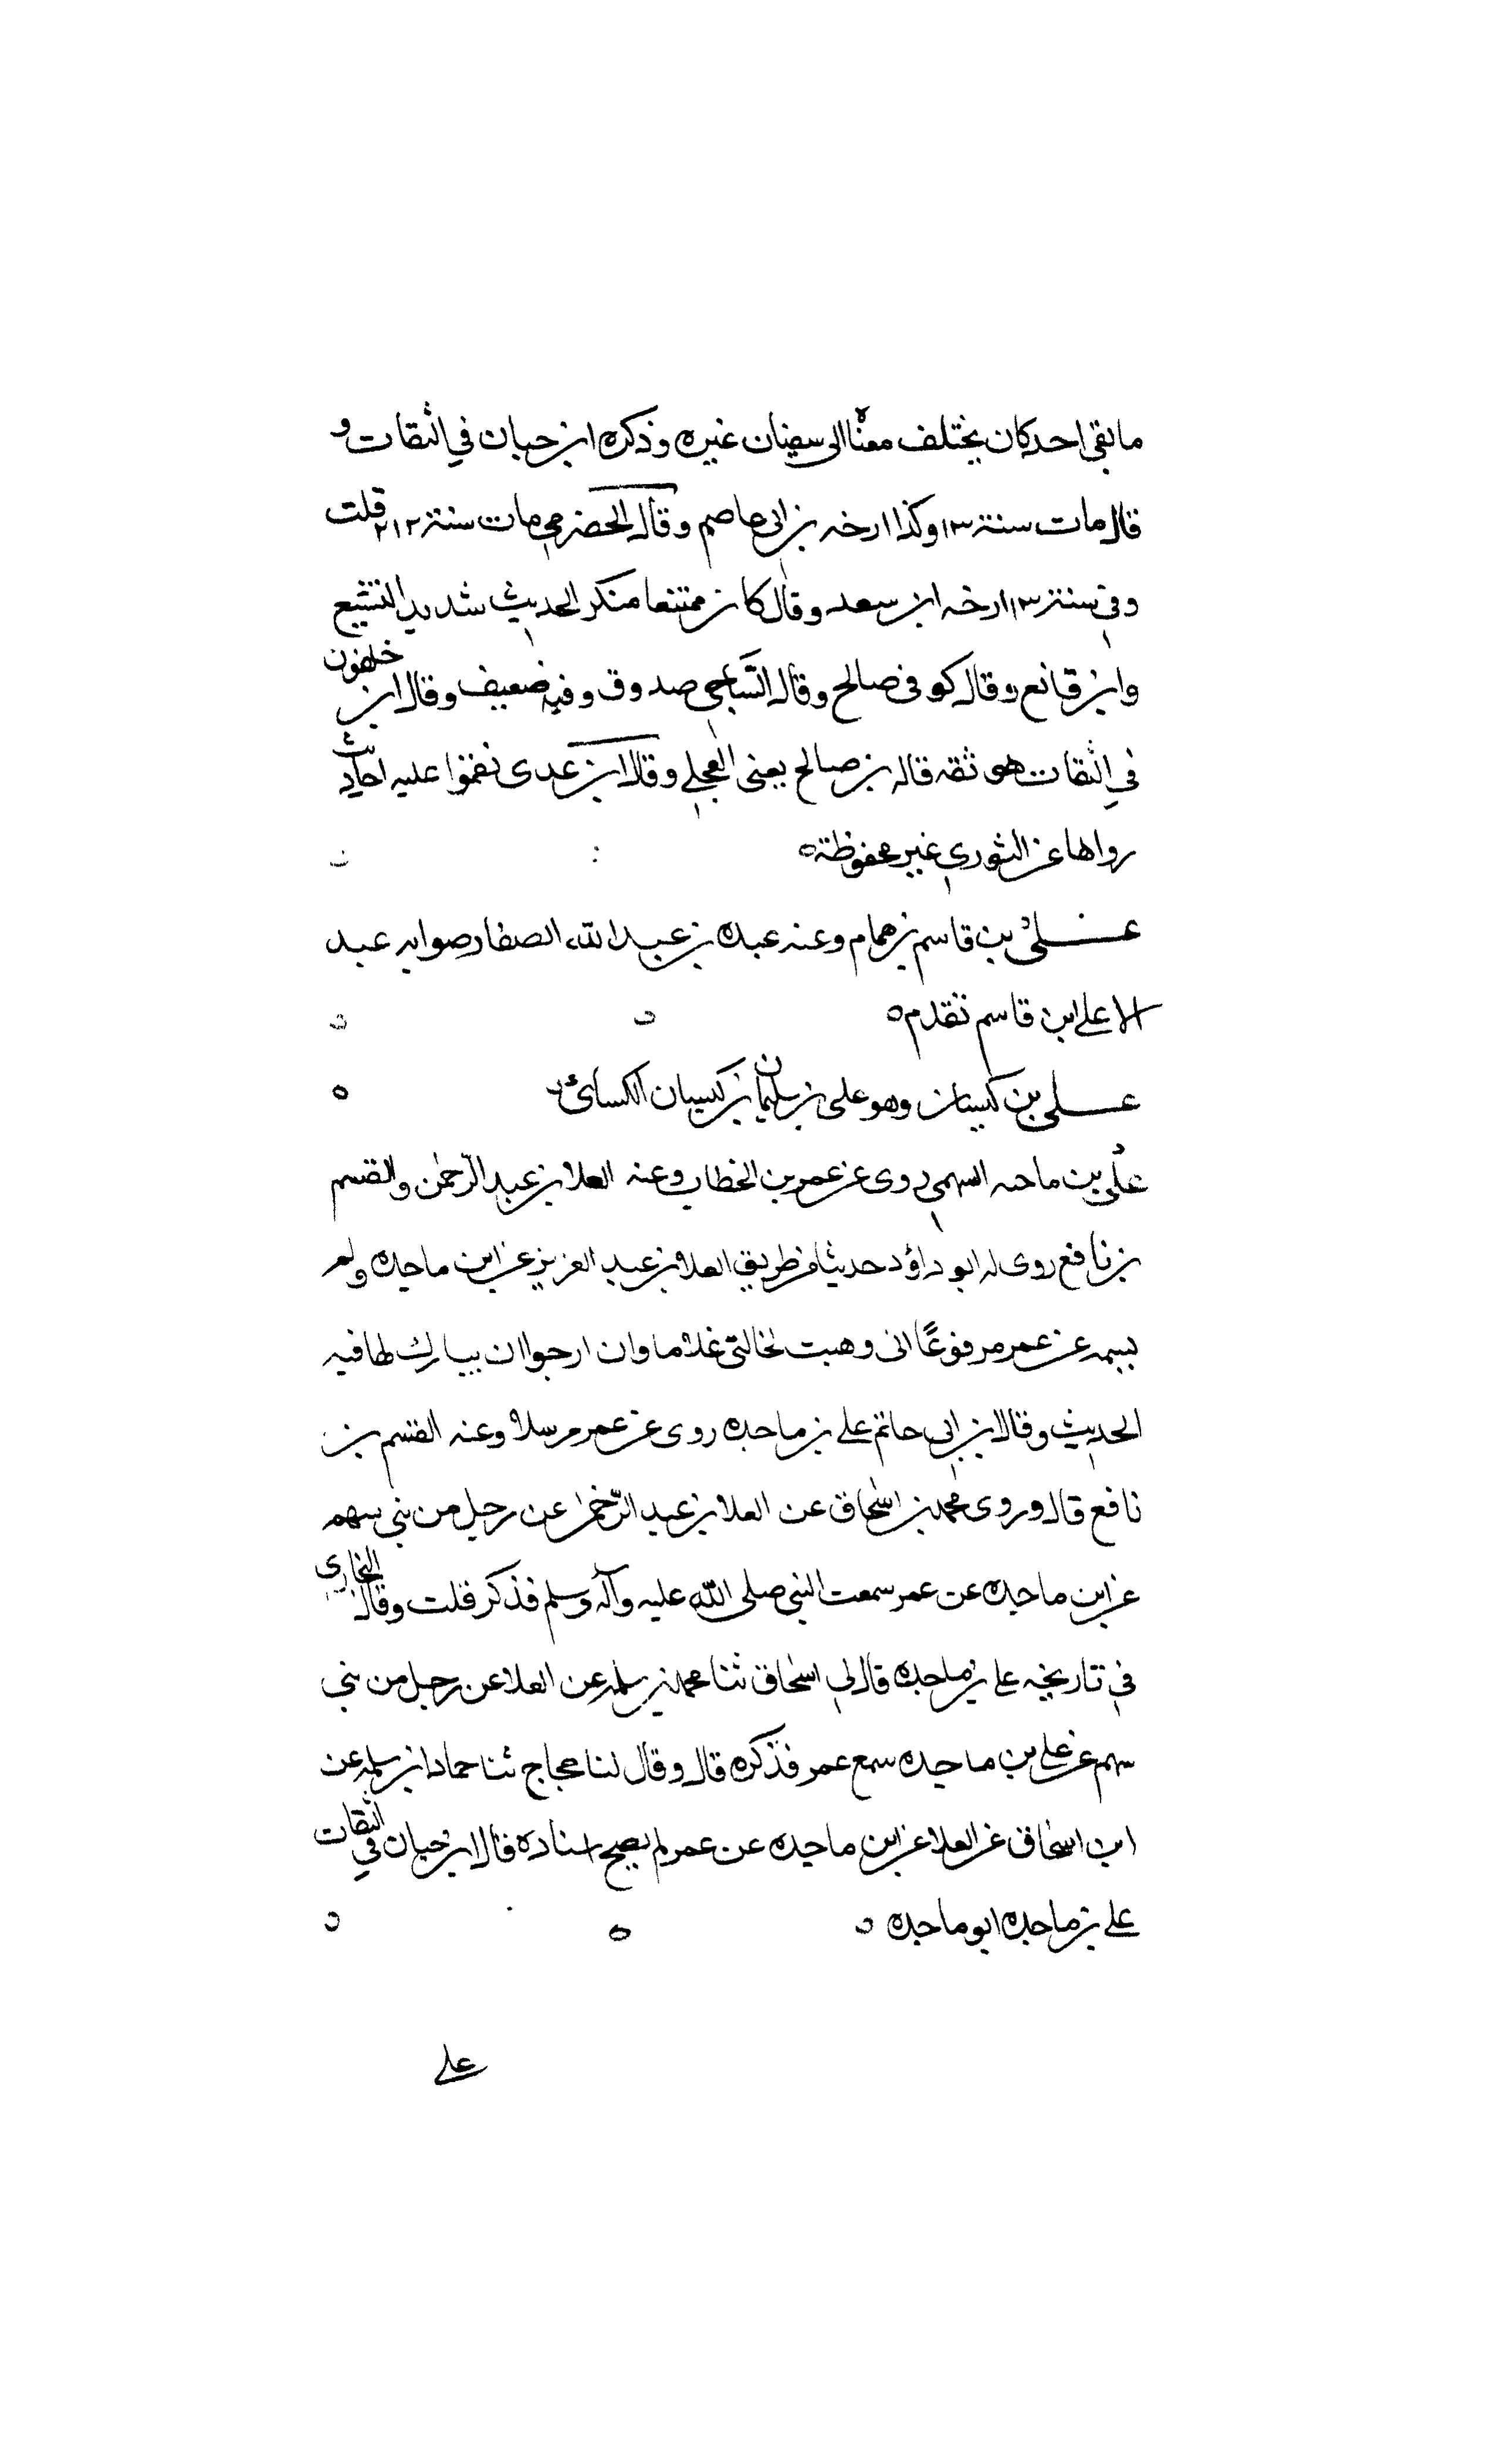 ما بقي احد كان يختلف معنا الى سفيان غيره وذكره ابن حبان في الثقات و
قال مات سنة ١٣ وكذا ارخه بن ابي عاصم وقال الحضرمي مات سنة ٢١٢ قلت
وفي سنة ١٣ ارخه ابن سعد وقال كان ممتنعا منكر الحديث شديد التشيع
وابن قانع وقال كوفي صالح وقال الساجي صدوق وفيه ضعيف وقال ابن خلفون
في الثقات هو ثقه قاله بن صالح يعني العجلي وقال ابن عدى نقموا عليه احاديث
رواها عن الثوري غير محفوظة ه
علي بن قاسم بن همام وعنه عبده بن عبد الله الصفار صوابه عبد
الاعلى ابن قاسم تقدم ه
علي بن كيسان وهو علي بن سليمان بن كيسان الكسائي
علي بن ماحده السهمي روى عن عمر بن الخطاب وعنه العلا بن عبد الرحمن والقسم
بن نافع روى له ابو داؤد حديثا من طريق العلا بن عبد العزيز عن ابن ماحده ولم
يسمه عن عمر مرفوعًا اني وهبت لخالتي غلاما وان ارجوا ان يبارك لها فيه
الحديث وقال ابن ابي حاتم علي بن ماحده روى عن عمر مرسلا وعنه القسم بن
نافع قال وروى محمد بن اسحاق عن العلا بن عبد الرحمن عن رجل من بني سهم
عن ابن ماحده عن عمر سمعت النبي صلى الله عليه وآله وسلم فذكر قلت وقال البخارى
في تاريخه علي بن ماحده قال لي اسحاق ثنا محمد بن سلمه عن العلا عن رجل من بني
سهم عن علي بن ماحده سمع عمر فذكره قال وقال لنا حجاج ثنا حماد ابن سلمه عن
ابن اسحاق عن العلا عن ابن ماحده عن عمر لم يصح اسناده قال ابن حبان في الثقات
علي بن ماحده ابو ماحده ه
علي